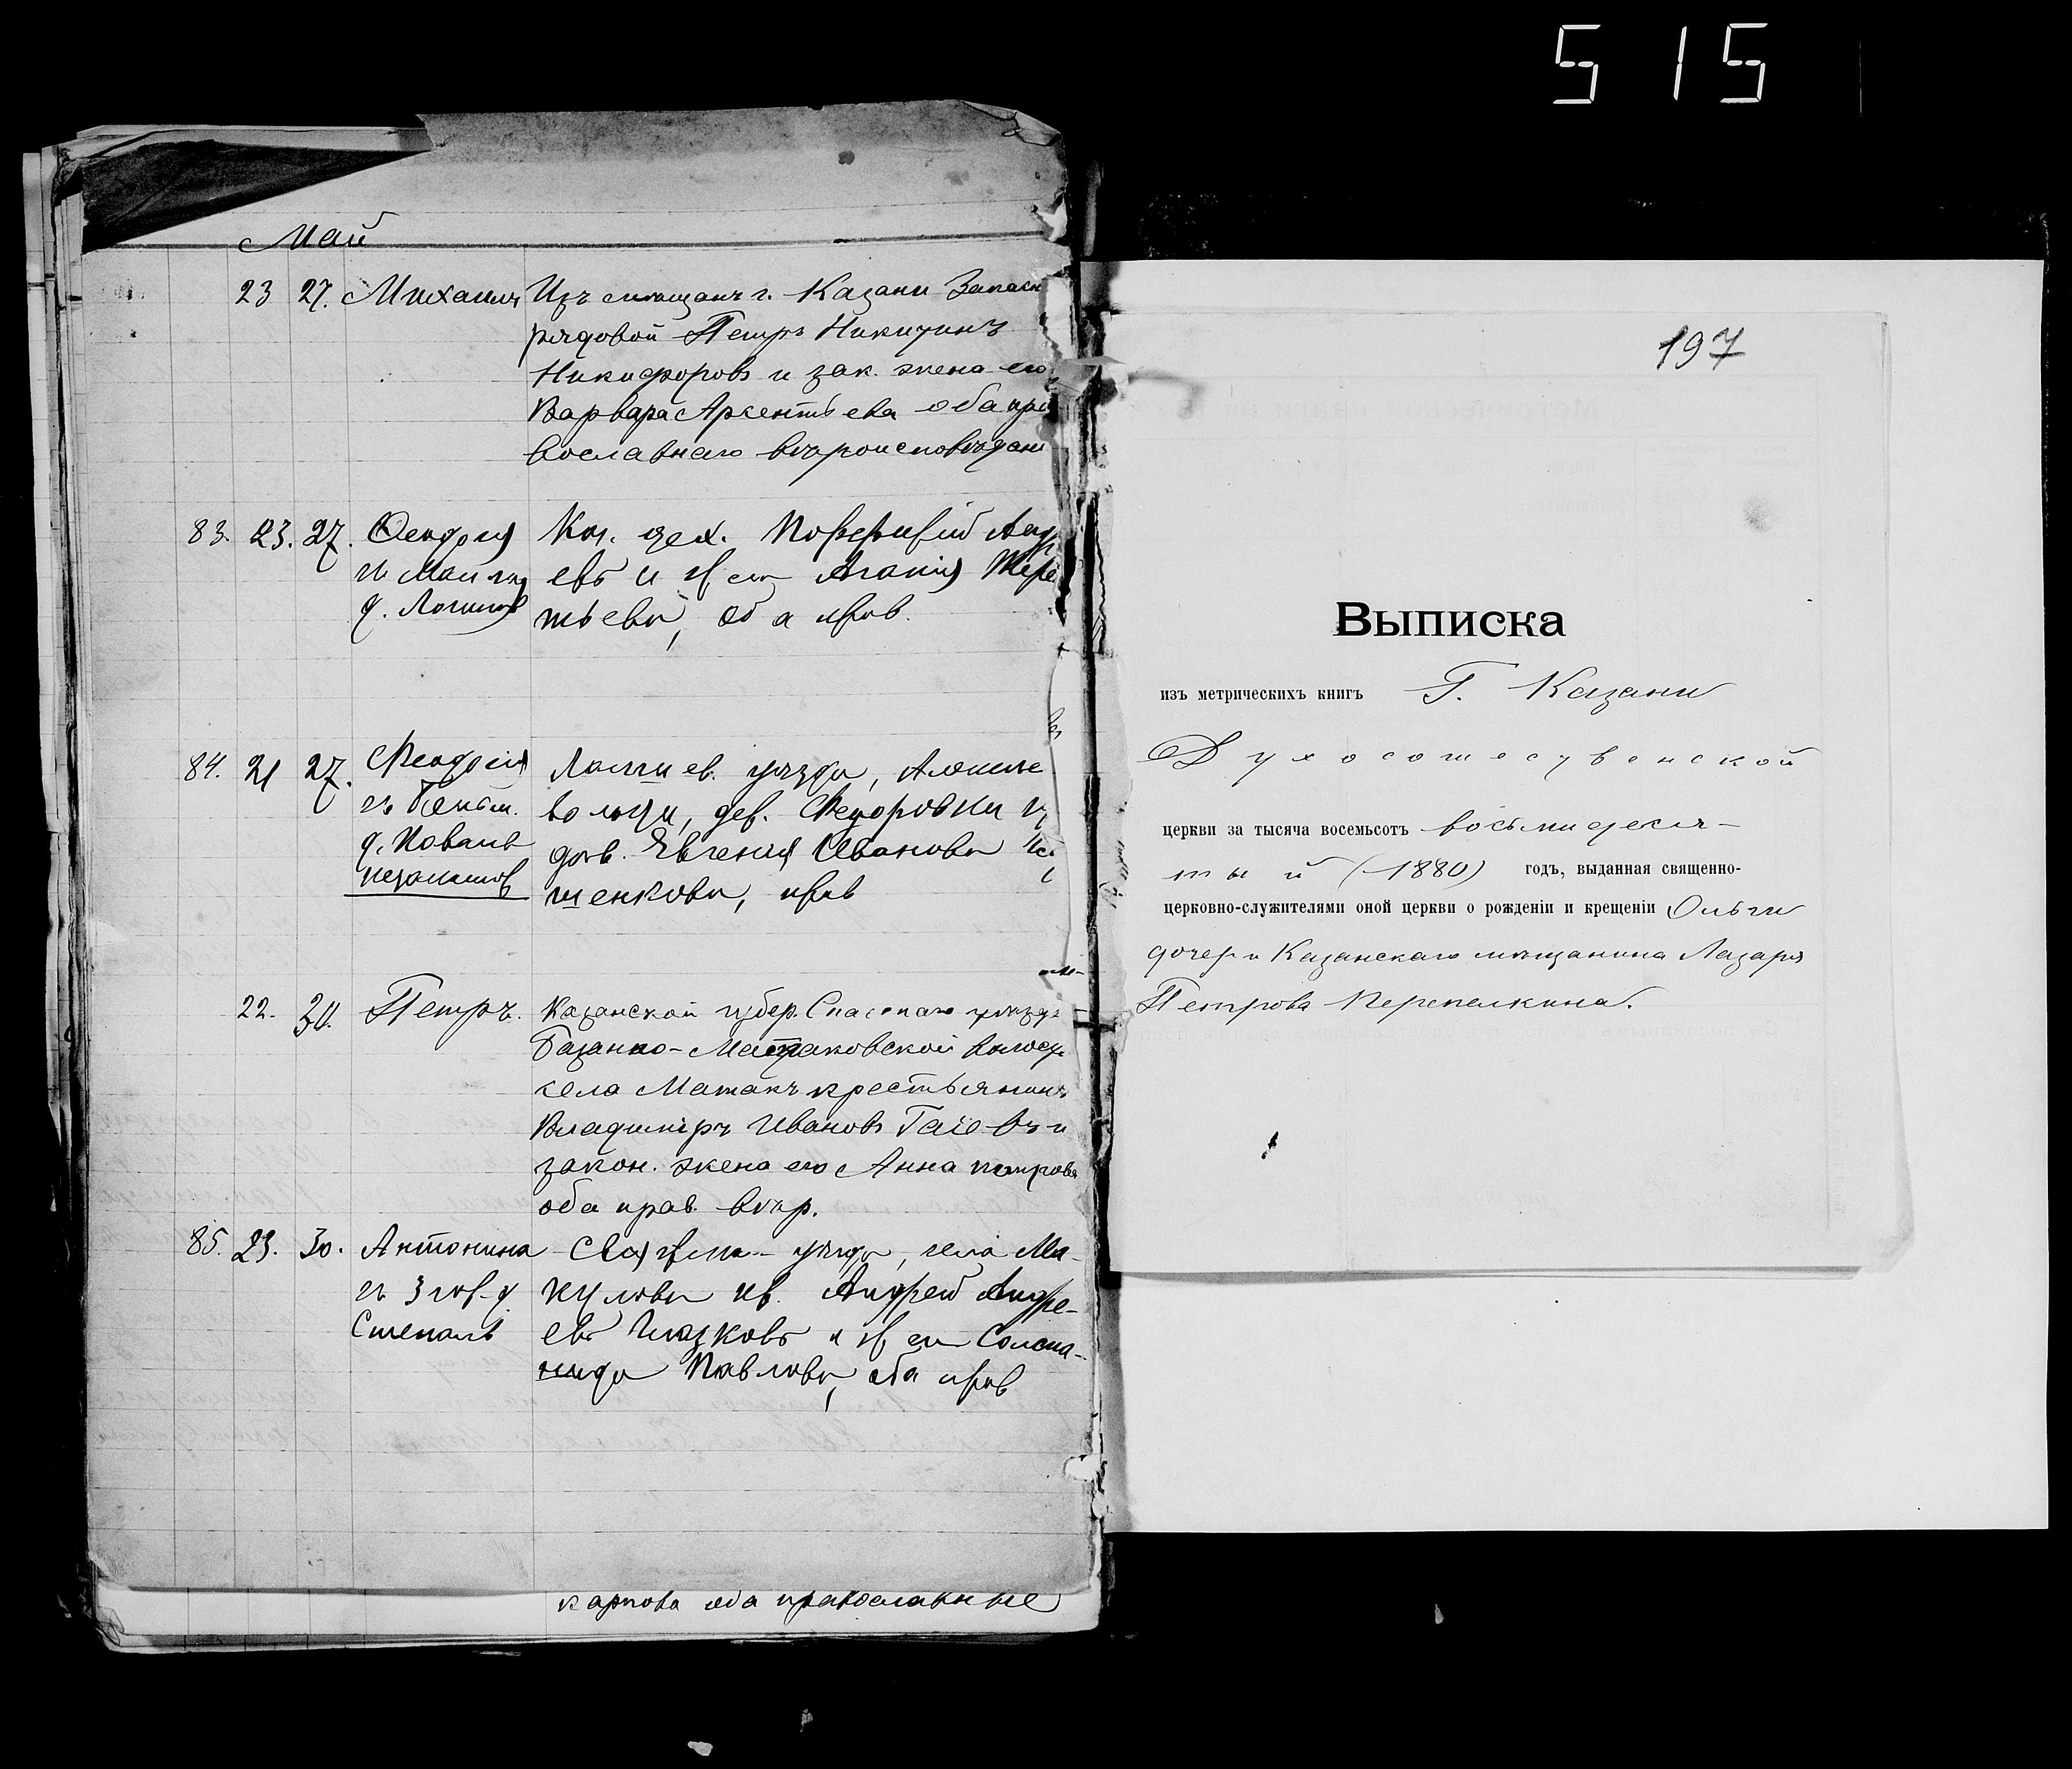 515
Май
23 27. Михаилъ Изъ мѣщанъ г. Казани Запасн
рядовой Петръ Никитинъ
Никифоровъ и зак. жена его
Варвара Арсентьева оба пра
вославнаго вѣроисповѣдан
83. 23. 27. Каз. цех. Порфирій Анд
евъ и
тьева, оба прав.
84. 21 27. Лаишев. уѣзда,
волости, дер. Федоровки
дѣв. Евгенія Иванова
шенкова, прав
22. 30. Петръ. Казанской губер. Спасскаго уѣзда
Базанно-Матаковской волост
села Матакъ крестьянинъ
Владиміръ Ивановъ Гаіевъ и
закон. жена его Анна петрова
оба прав. вѣр.
85. 23. 30. Антонина Свіяжска уѣзда, села Ма-
кулова кр. Андрей Андре-
Степанъ евъ Глазковъ и ж его Солома-
нида Павлова, оба прав
карпова оба православные
197
Выписка
изъ метрическихъ книгъ Г. Казани
Духосошественской
церкви за тысяча восемьсотъ восьмидеся-
тый (1880) годъ, выданная священно-
церковно-служителями оной церкви о рожденіи и крещеніи Ольги
дочери Казанскаго мѣщанина Лазаря
Петрова Перепелкина.